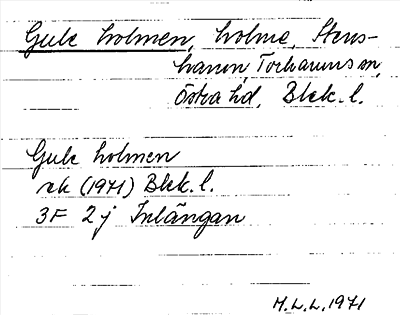 Gula holmen, holme, Stens-
hamn, Torhamns sn,
Östra hd, Blek. l.
Gula holmen
rk (1971) Blek. l.
3F 2j Inlängan
M.L.L. 1971